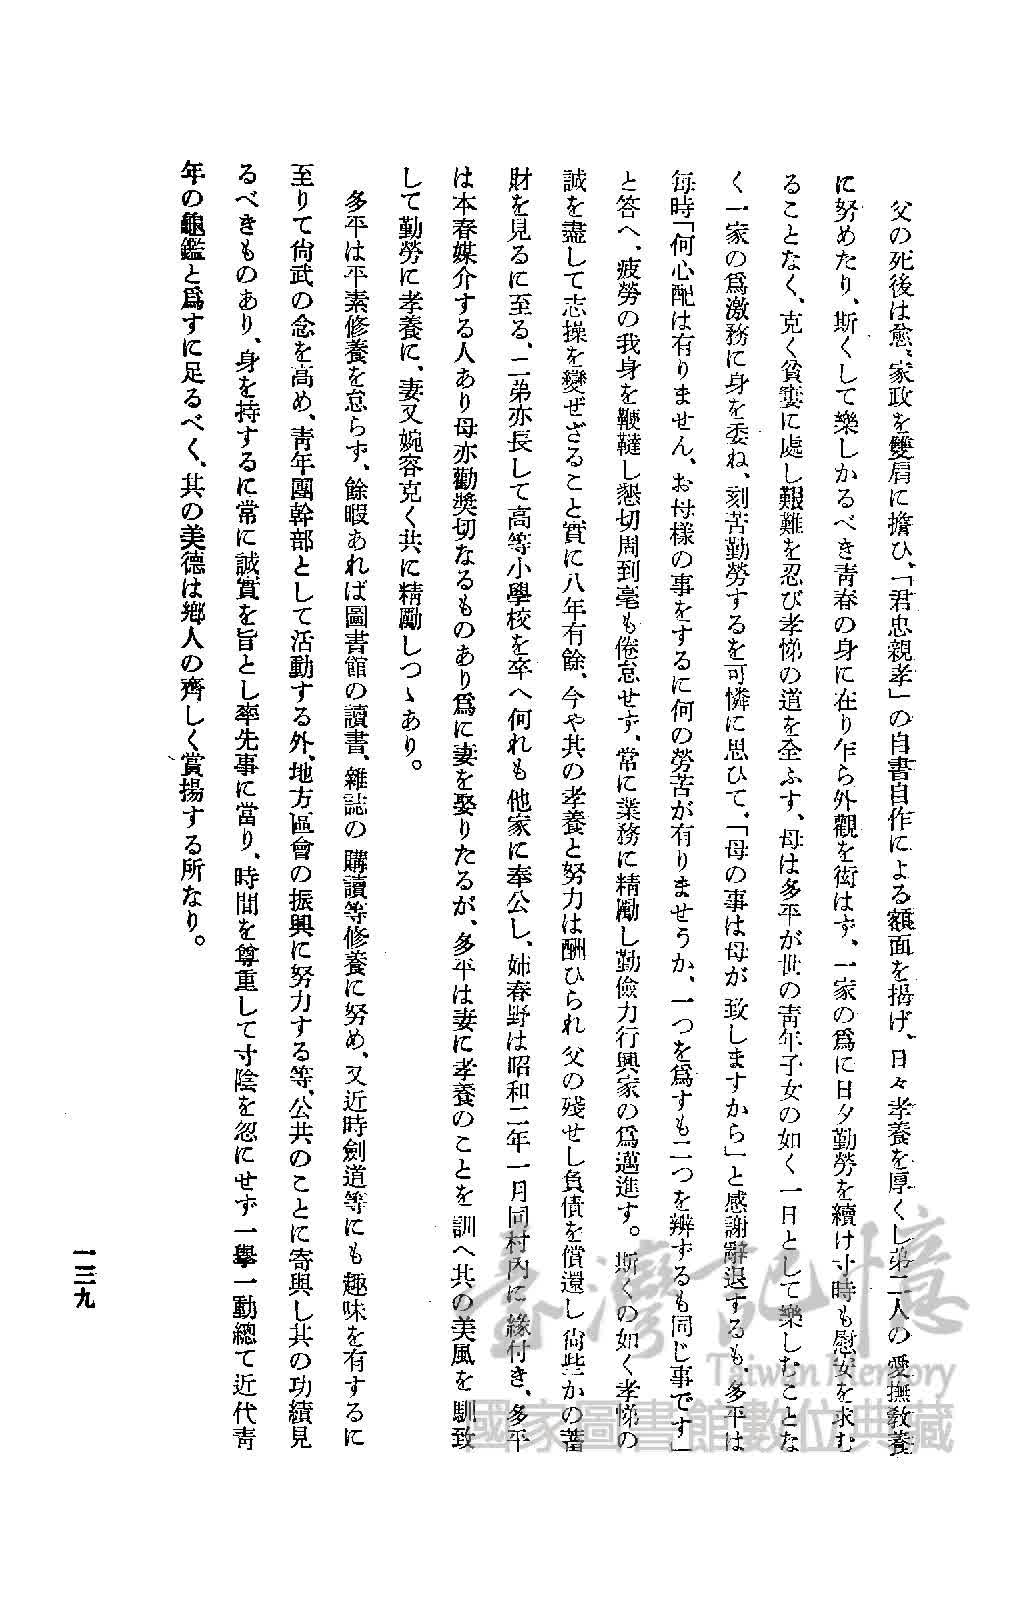 父の死後は愈〻家政を雙肩に擔ひ、「君忠親孝」の自書自作による額面を揭げ、日々孝養を厚くし弟二人の愛撫敎養
に努めたり、斯くして樂しかるべき靑春の身に在り乍ら外觀を衒はず、一家の爲に日夕勤勞を續け寸時も慰安を求む
ることなく、克く貧窶に處し艱難を忍び孝悌の道を全ふす、母は多平が世の靑年子女の如く一日として樂しむことな
く一家の爲激務に身を委ね、刻苦勤勞するを可憐に思ひて、「母の事は母が致しますから」と感謝辭退するも、多平は
每時「何心配は有りません、お母樣の事をするに何の勞苦が有りませうか、一つを爲すも二つを辨ずるも同じ事です」
と答へ、疲勞の我身を鞭韃し懇切周到毫も倦怠せず、常に業務に精勵し勤儉力行興家の爲邁進す。斯くの如く孝悌の
誠を盡して志操を變ぜざること實に八年有餘、今や其の孝養と努力は酬ひられ父の殘せし負債を償還し尙些かの蓄
財を見るに至る、二弟亦長して高等小學校を卒へ何れも他家に奉公し、姉春野は昭和二年一月同村內に緣付き、多平
は本春媒介する人あり母亦勸奬切なるものあり爲に妻を娶りたるが、多平は妻に孝養のことを訓へ其の美風を馴致
して勤勞に孝養に、妻又婉容克く共に精勵しつゝあり。
多平は平素修養を怠らず、餘暇あれば圖書館の讀書、雜誌の購讀等修養に努め、又近時劍道等にも趣味を有するに
至りて尙武の念を高め、靑年團幹部として活動する外、地方區會の振興に努力する等、公共のことに寄與し其の功績見
るべきものあり、身を持するに常に誠實を旨とし率先事に當り、時間を尊重して寸陰を忽にせず一擧一動總て近代靑
年の龜鑑と爲すに足るべく、其の美德は鄕人の齊しく賞揚する所なり。
一三九
臺灣記憶
Taiwan Memory
國家圖書館數位典藏